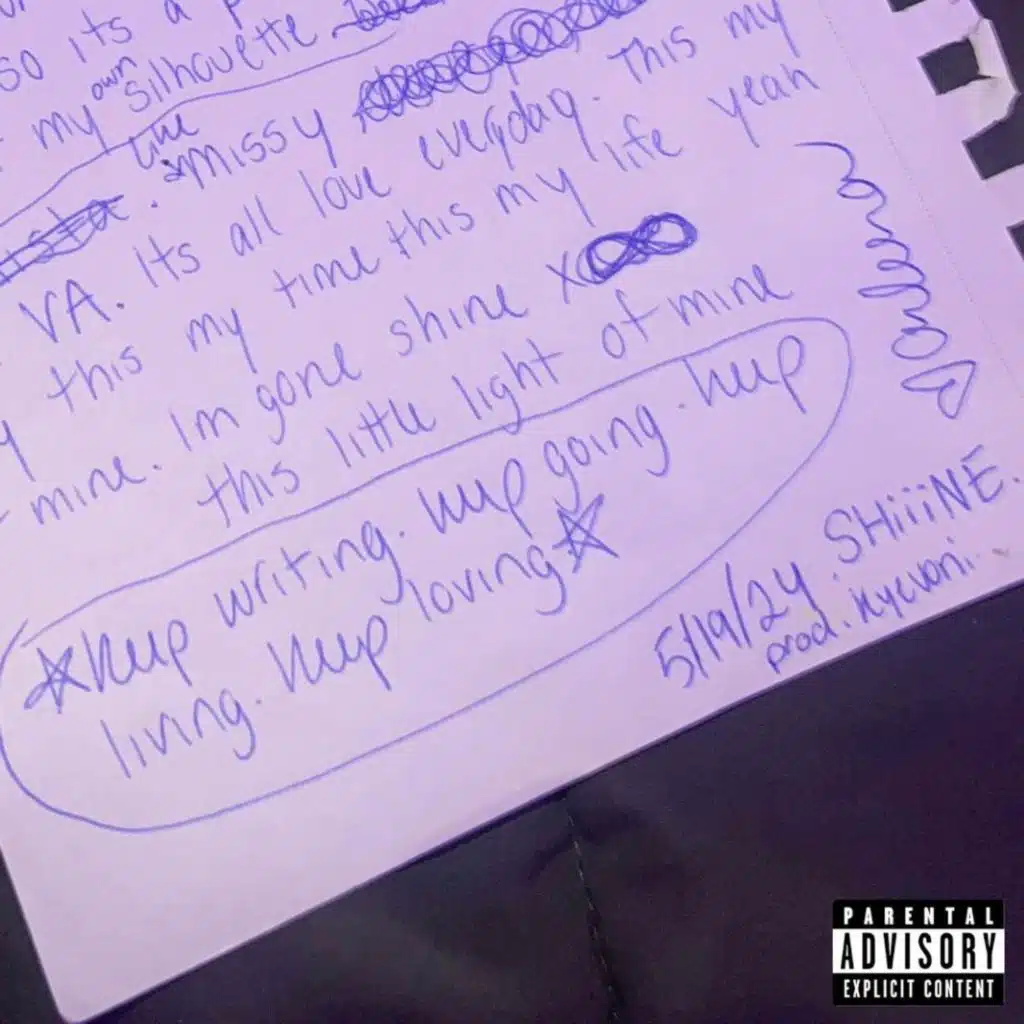 so its a p
my own silhouette
like missy
VA. Its all love everyday. This my
this my time this my life yeah
mine. Im gone shine x
this little light of mine
☆keep writing. keep going. keep
living. keep loving☆
5/19/24. SHiiiNE.
prod. kyevoni.
PARENTAL
ADVISORY
EXPLICIT CONTENT